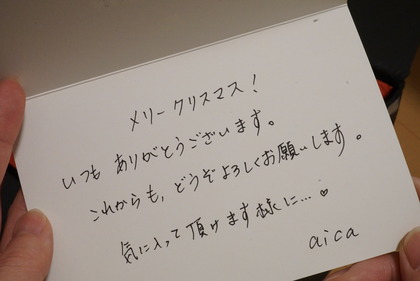 メリークリスマス!
いつも ありがとうございます。
これからも、どうぞよろしくお願いします。
気に入って頂けます様に…♥
aica